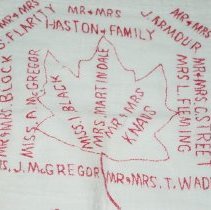 MR+MRS
J. ARMOUR
MR+MRS
HASTON+FAMILY
MR+MRS BLOCK
MISS. A. McGREGOR
MISS. I. BLACK
MRS. MARTINDALE
MR+MRS
MRS L. FLEMING
MR+MRS
STREET
J. McGREGOR
MR+MRS. T. WADD